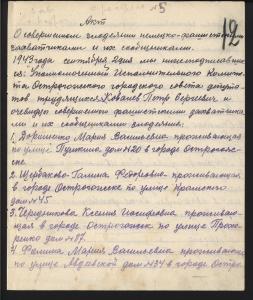 №5
12
Акт
О совершенном злодеянии немецко-фашистскими
захватчиками и их сообщниками.
1943 года сентября 2 дня мы нижеподписавшие-
ся: Уполномоченный Исполнительного Комите-
та Острогожского городского совета депута-
тов трудящихся Ковалев Петр Сергеевич и
очевидцы совершенного фашистскими захватчика
ми и их сообщниками злодеяния.
1. Доришенко Мария Васильевна проживающая
по улице Пушкина дом №20 в городе Острогож-
ске.
2. Щербакова Галина Федоровна проживающая
в городе Острогожске по улице
дом №45
3. Ксения Иосифовна прожива-
ющая в городе Острогожск по улице Прохо-
ренко дом №87.
4. Фомина Мария Васильевна проживающа
по улице Авдеевской дом №34 в городе Остро